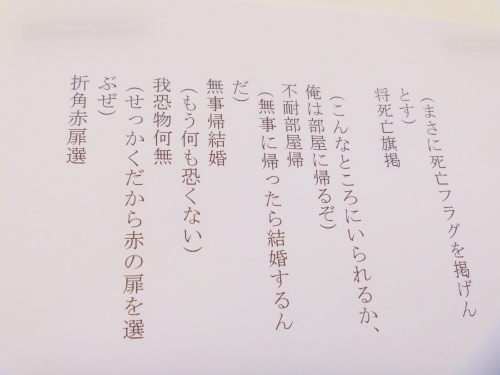 (まさに死亡フラグを掲げん
とす)
将死亡旗掲
(こんなところにいられるか、
俺は部屋に帰るぞ)
不耐部屋帰
(無事に帰ったら結婚するん
だ)
無事帰結婚
(もう何も恐くない)
我恐物何無
(せっかくだから赤の扉を選
ぶぜ)
折角赤扉選